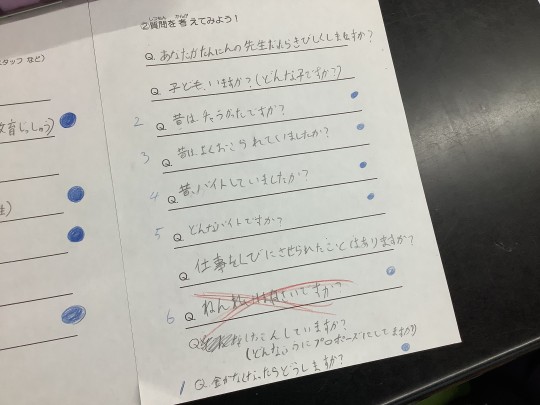 スタッフ など)
教育じっしゅう)
②質問を考えてみよう！
しつもん かんが
Q. あなたがたんにんの先生だったらきびしくしますか？
Q. 子ども、いますか？(どんな子ですか？)
2 Q 昔はチャラかったですか？
3 Q 昔はよくおこられていましたか？
4 Q 昔、バイトしていましたか？
5 Q どんなバイトですか？
Q 仕事をくびにさせられたことはありますか？
6 Q
Q けっこんしていますか？
(どんなふうにプロポーズにしてますか)
1 Q. 金がなくなったらどうしますか？